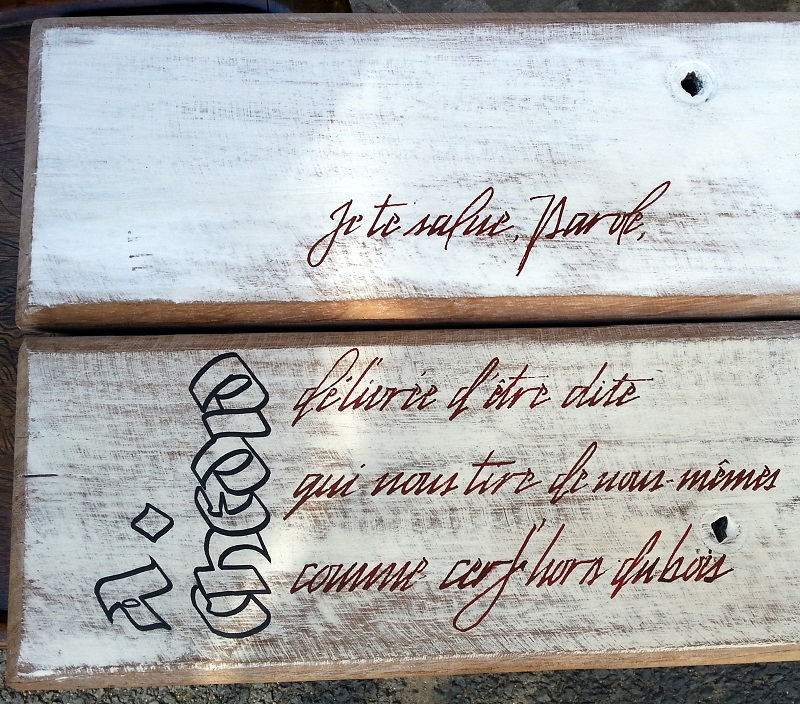 Je te salue, Parole,
délivrée d'être dite
qui nous tire de nous-mêmes
comme cerf hors du bois
A. Chedid